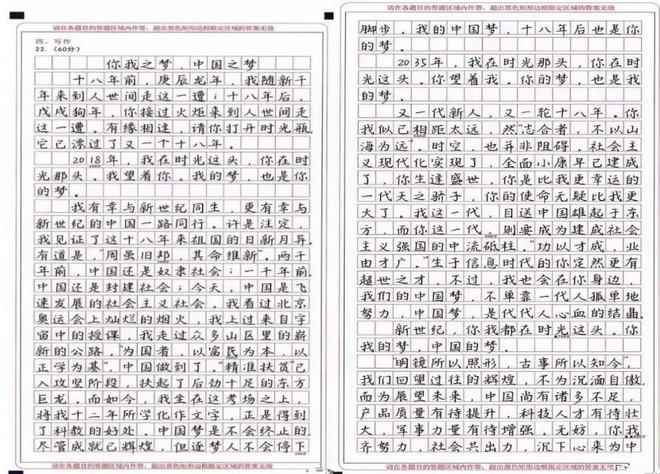 请在各题目的答题区域内作答,超出黑色矩形边框限定区域的答案无效
四、写作
22.(60分)
你我之梦,中国之梦
十八年前,庚辰龙年,我随新千
年来到人世间走这一遭;十八年后,
戊戌狗年,你接过火炬来到人世间走
这一遭。有缘相逢,请你打开时光瓶,
它已漂过了又一个十八年。
2018年,我在时光这头,你在时
光那头。我望着你。我的梦,也是你
的梦。
我有幸与新世纪同生,更有幸与
新世纪的中国一路同行。许是注定,
我见证了这十八年来祖国的日新月异。
有道是,“周虽旧邦,其命维新”,两千
年前,中国还是奴隶社会;一千年前,
中国还是封建社会;今天,中国是飞
速发展的社会主义社会。我看过北京
奥运会上灿烂的烟火,我上过来自宇
宙中的授课,我走过众多山区里的崭
新的公路。“为国者,以富民为本,以
正学为基”,中国做到了。“精准扶贫”已
入攻坚阶段,扶起了后劲十足的东方
巨龙。而如今,我生在这考场之上,
将我十二年所学化作文字,正是得到
了科教的好处。中国梦是不会终止的
尽管成就已辉煌,但逐梦人不会停下
请在各题目的答题区域内作答,超出黑色矩形边框限定区域的答案无效
请在各题目的答题区域内作答,超出黑色矩形边框限定区域的答案无效
脚步。我的中国梦,十八年后也是你
的梦。
2035年,我在时光那头,你在时
光这头。你望着我。你的梦,也是我
的梦。
又一代新人,又一轮十八年。你
我似已相距太远,然“志合者,不以山
海为远”。时空,也并非阻碍。社会主
义现代化实现了,全面小康早已建成
了,你生逢盛世,你是比我更幸运的
一代天之骄子,你的使命无疑比我更
大了。我这一代,目送中国雄起于东
方,而你这一代,则要成为建成社会
主义强国的中流砥柱。“功以才成,业
由才广。”生于信息时代的你定然更有
超世之才,不过,我也会在你身边,
我们的中国梦,不单靠一代人孤单地
努力,中国梦,是代代人心血的结晶。
新世纪,你我都在时光这头。你
我的梦,中国的梦。
“明镜所以照形,古事所以知今”,
我们回望过往的辉煌,不为沉湎自傲,
而为展望未来,中国尚有诸多不足,
产品质量有待提升,科技人才有待壮
大,军事力量有待增强。无妨,你我
齐努力,社会共出力,沉下心来为中
请在各题目的答题区域内作答,超出黑色矩形边框限定区域的答案无效